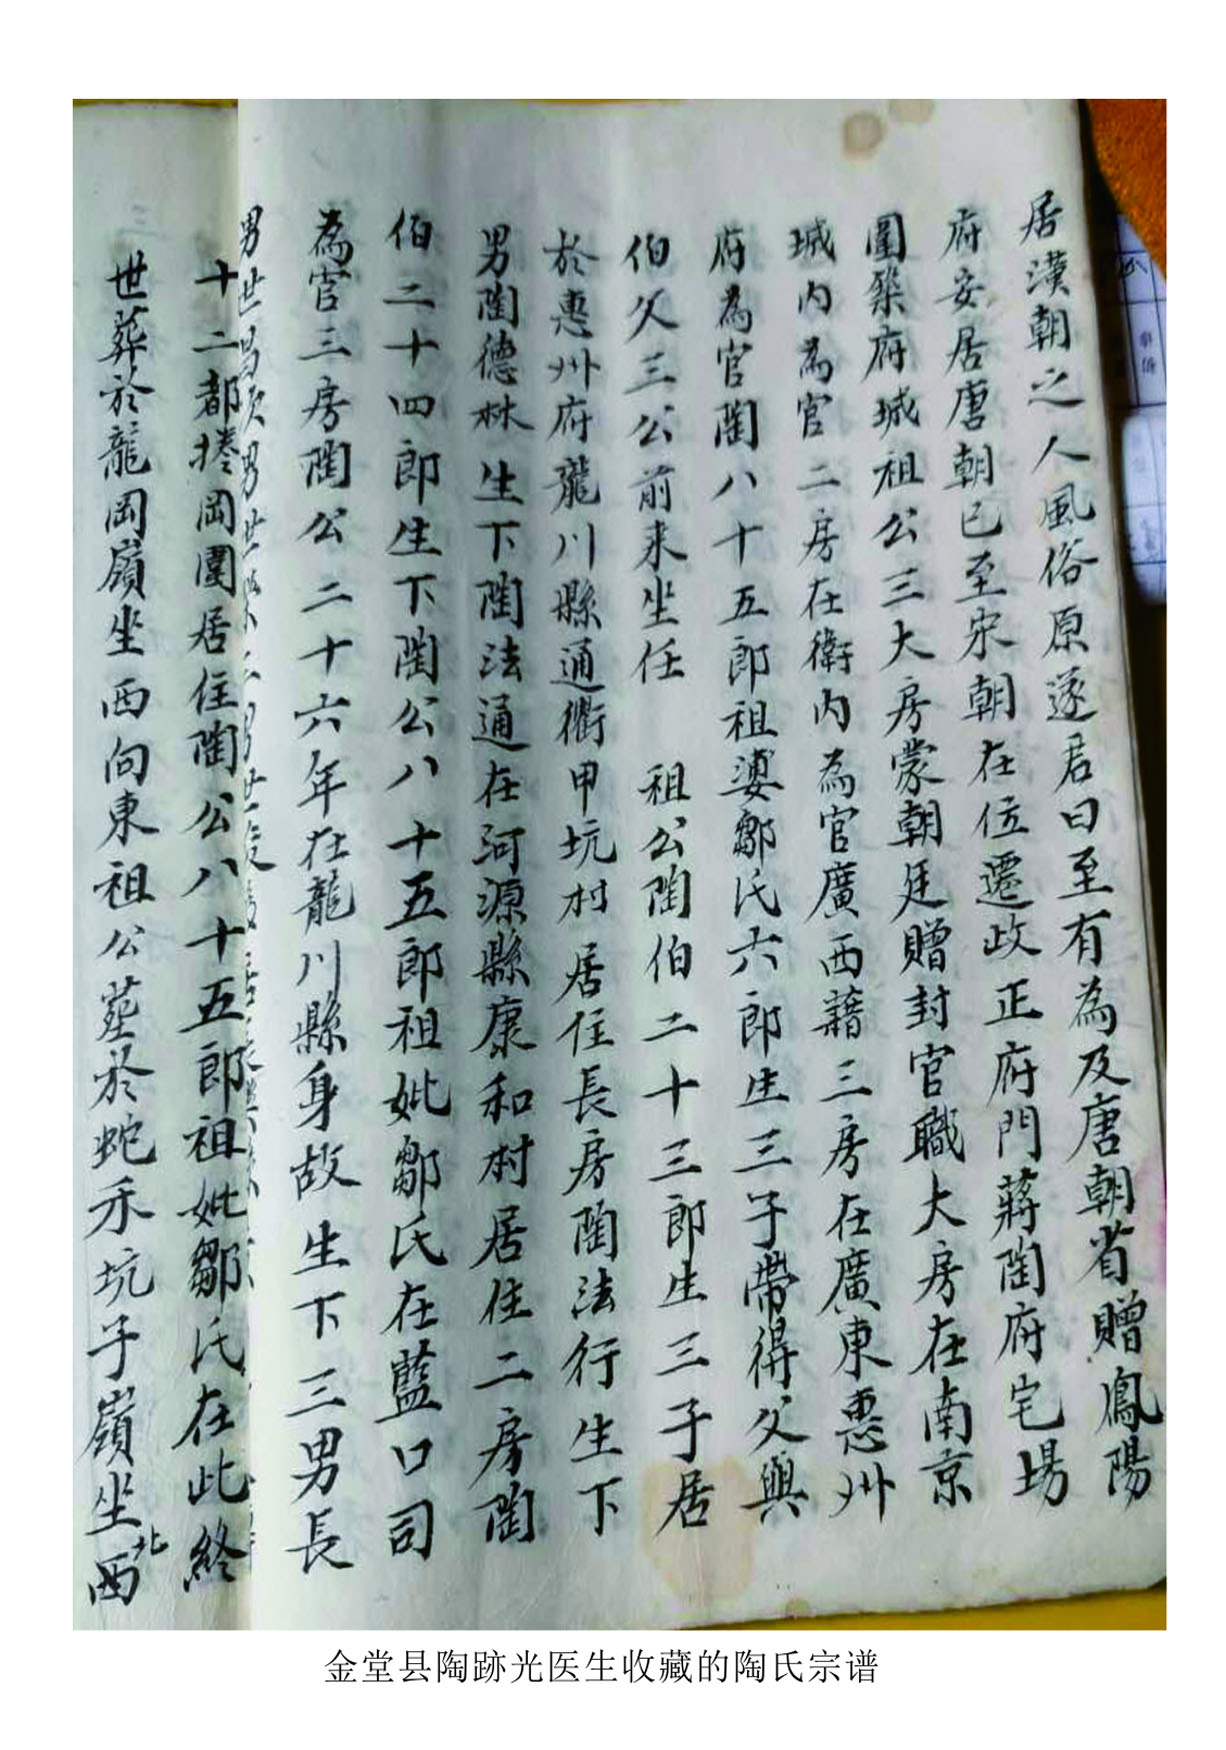 居漢朝之人風俗原遂君曰至有為及唐朝省贈鳳陽
府安居唐朝已至宋朝在位遷政正府門蔣陶府宅場
圍築府城祖公三大房蒙朝廷贈封官職大房在南京
城内為官二房在衛内為官廣西藉三房在廣東惠州
府為官陶八十五郎祖婆鄒氏六郎生三子帶得父與
伯父三公前来坐任 祖公陶伯二十三郎生三子居
於惠州府龍川縣通衢甲坑村居住長房陶法行生下
男陶德林生下陶法通在河源縣康和村居住二房陶
伯二十四郎生下陶公八十五郎祖妣鄒氏在藍口司
為官三房陶公二十六年在龍川縣身故生下三男長
男世昌次男世
十二都 岡圍居住陶公八十五郎祖妣鄒氏在此終
世葬於龍岡嶺坐西向東祖公葬於蛇禾坑子嶺坐西
北
金堂县陶跡光医生收藏的陶氏宗谱